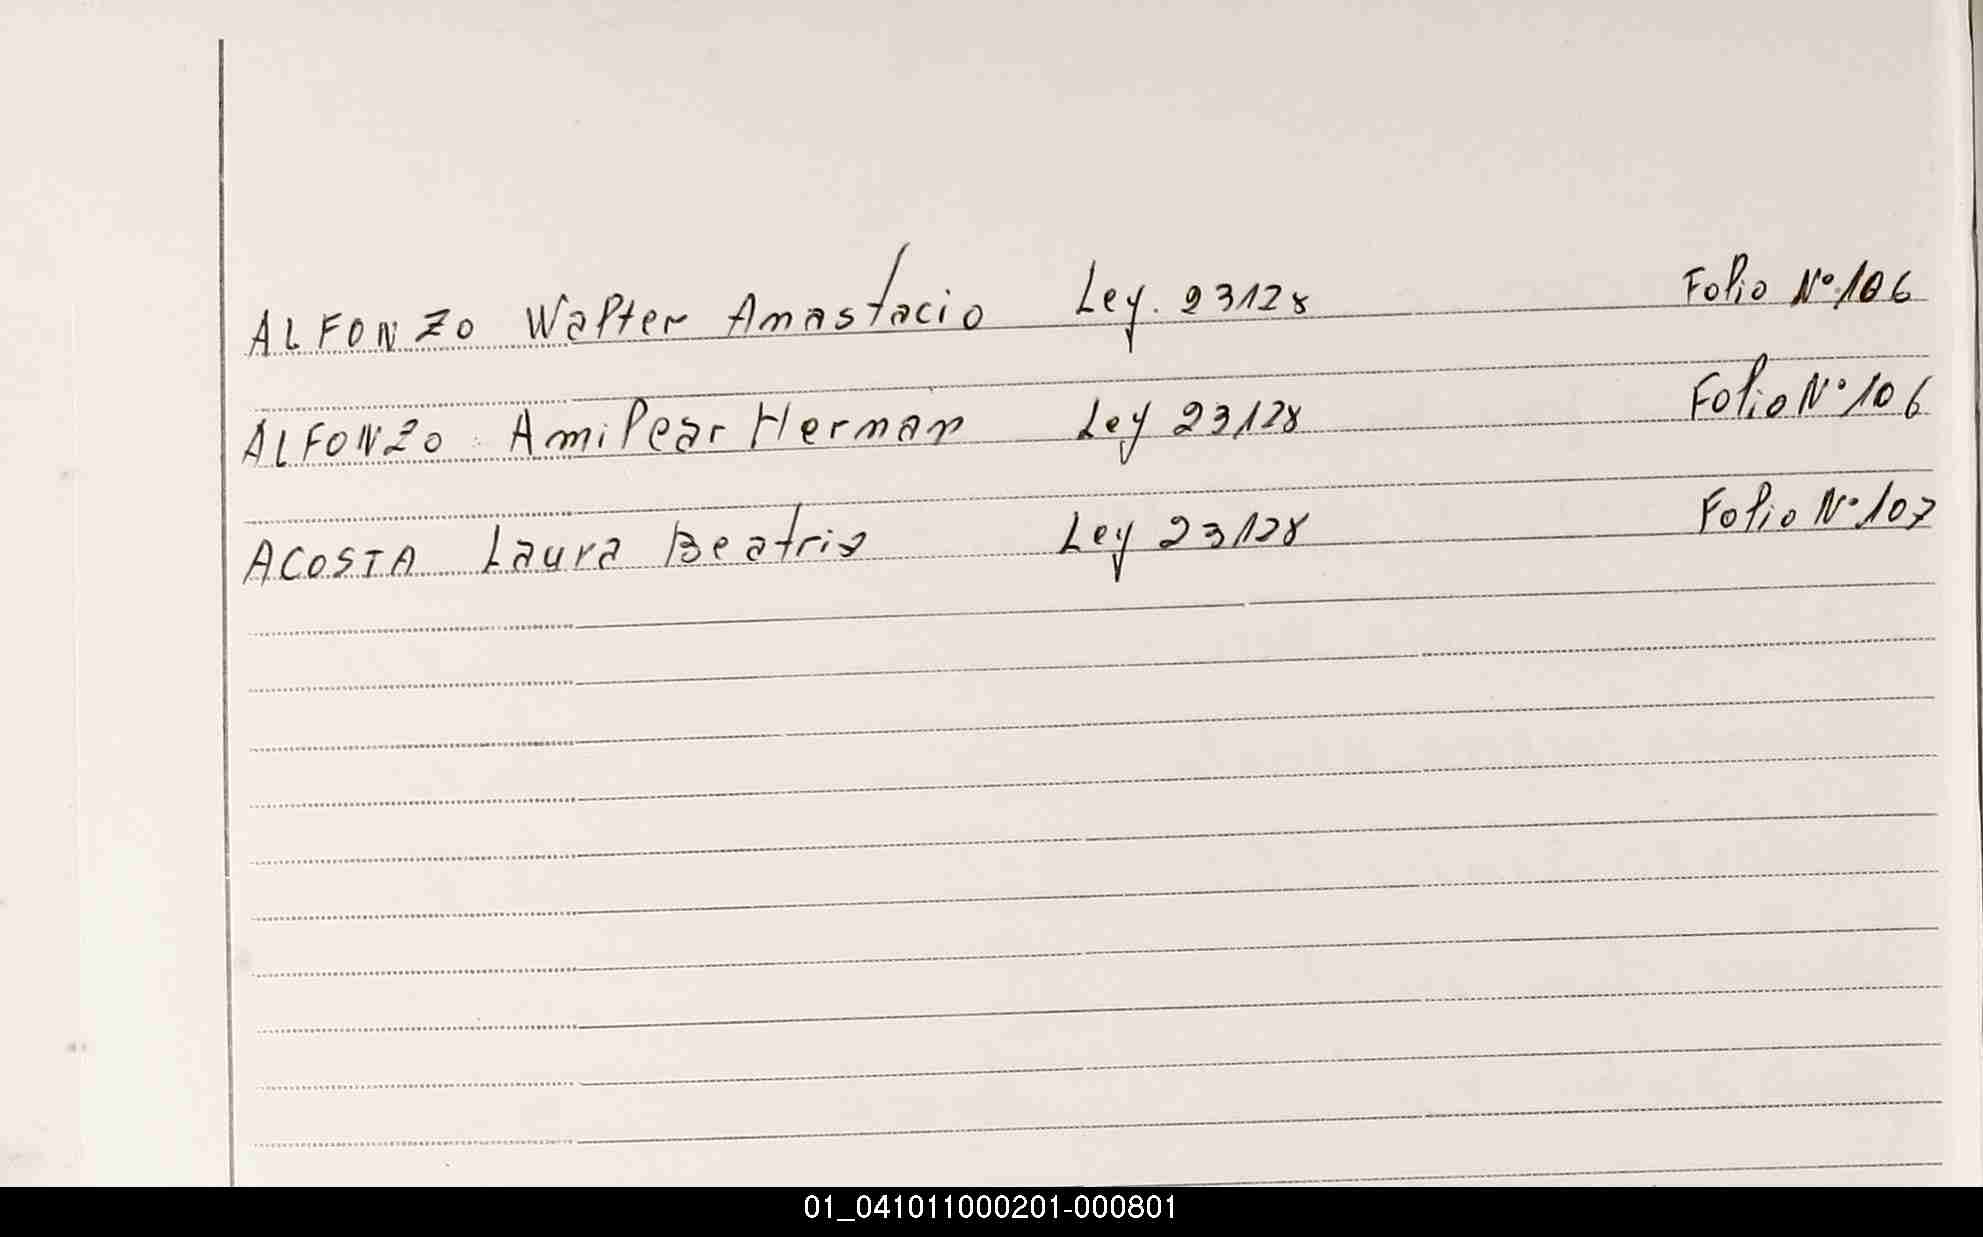 ALFONZO Walter Anastacio Ley. 23128 Folio Nº 106
ALFONZO Amilcar Hernan Ley 23128 Folio Nº 106
ACOSTA Laura Beatriz Ley 23128 Folio Nº 107
01_041011000201-000801